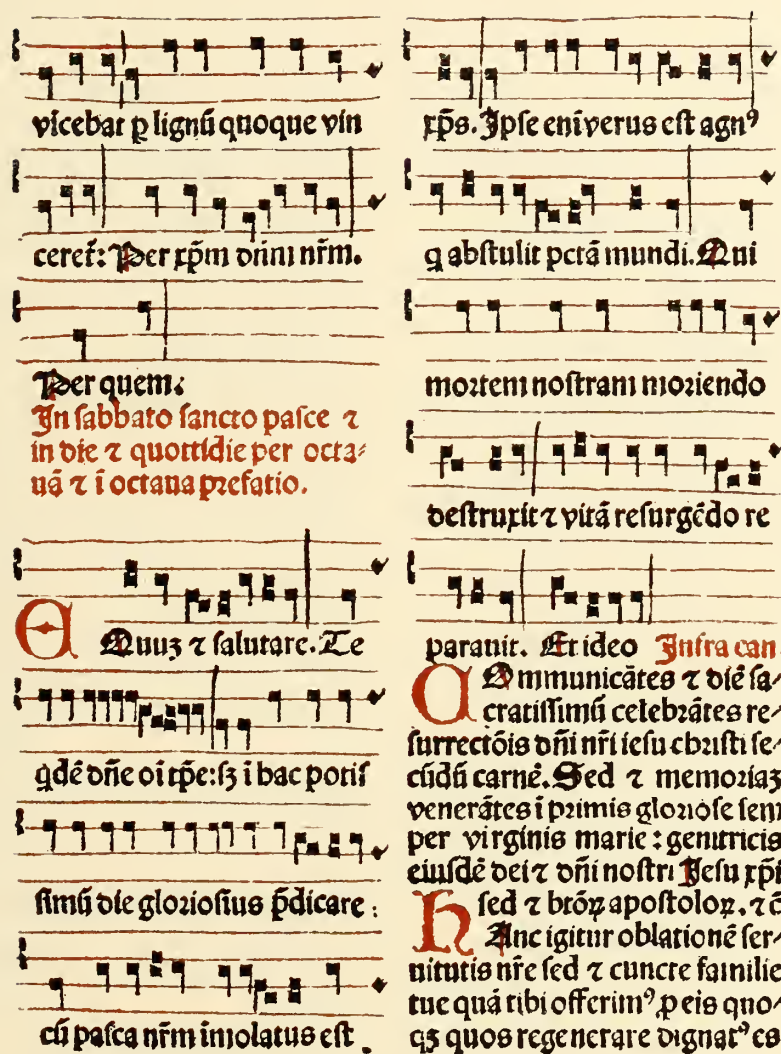 vicebat ꝑ lignū quoque vin
ceret̄: Per xp̄m dn̄m nr̄m.
Per quem:
In sabbato sancto pasce ⁊
in die ⁊ quottidie per octa⸗
uā ⁊ ī octaua prefatio.
EQuuꝫ ⁊ salutare. Te
qdē dn̄e oī tp̄e: sꝫ ī hac potis
simū die gloriosius p̄dicare:
cū pasca nr̄m īmolatus est
xp̄s. Ipse eni verus est agnꝰ
q abstulit pctā mundi. Qui
mortem nostram moriendo
destruxit ⁊ vitā resurgēdo re
parauit. Et ideo Infra can
COmmunicātes ⁊ diē sa⸗
cratissimū celebrātes re⸗
surrectōis dn̄i nr̄i iesu christi se⸗
cūdū carnē. Sed ⁊ memoriaꝫ
venerātes ī primis gloriose sem
per virginis marie: genitricis
eiusdē dei ⁊ dn̄i nostri Jesu xp̄i
sed ⁊ btōꝝ apostoloꝝ. ⁊ c̄
HAnc igitur oblationē ser⸗
uitutis nr̄e sed ⁊ cuncte familie
tue quā tibi offerimꝰ ꝓ eis quo⸗
qꝫ quos regenerare dignatꝰ es